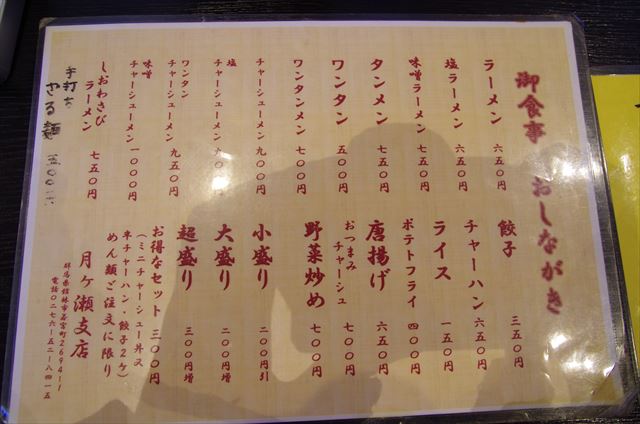 御食事 おしながき
ラーメン 六五〇円
塩ラーメン 六五〇円
味噌ラーメン 七五〇円
タンメン 七五〇円
ワンタン 五〇〇円
ワンタンメン 七〇〇円
チャーシューメン 九〇〇円
塩
チャーシューメン 九〇〇円
ワンタン
チャーシューメン 九五〇円
味噌
チャーシューメン 一〇〇〇円
しおわさび
ラーメン 七五〇円
手打ち
ざる麺 五〇〇円
餃子 三五〇円
チャーハン 六五〇円
ライス 一五〇円
ポテトフライ 四〇〇円
唐揚げ 六五〇円
おつまみ
チャーシュ 七〇〇円
野菜炒め 七〇〇円
小盛り 二〇〇円引
大盛り 二〇〇円増
超盛り 三〇〇円増
お得なセット 三〇〇円
(ミニチャーシュー丼又
半チャーハン・餃子2ヶ)
めん類ご注文に限り
月ヶ瀬支店
群馬県館林市若宮町2694-1
電話0276-52-8415